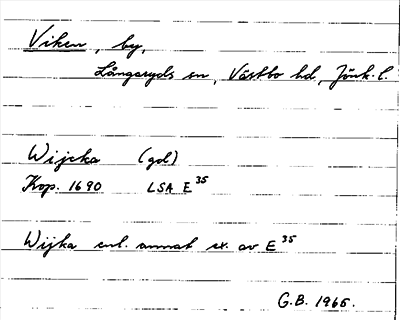 Viken, by,
Långaryds sn, Västbo hd, Jönk. l.
Wijcka (gd)
Kop. 1690 LSA E 35
Wijka enl. annat ex. av E 35
G.B. 1965.